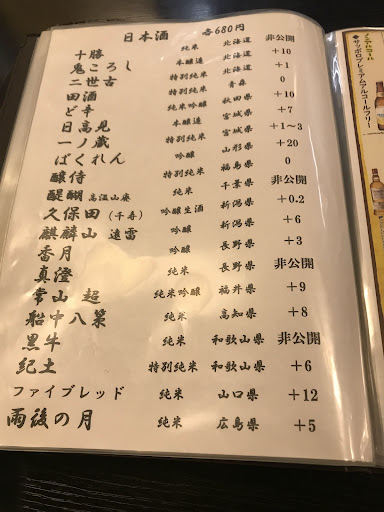 日本酒 各680円
十勝 純米 北海道 非公開
鬼ころし 本醸造 北海道 +10
二世古 特別純米 北海道 +1
田酒 特別純米 青森 0
ど辛 純米 秋田県 +10
日高見 本醸造 宮城県 +7
一ノ蔵 特別純米 宮城県 +1~3
ばくれん 吟醸 山形県 +20
醸侍 特別純米 福島県 0
醍醐 高温山廃 純米 千葉県 非公開
久保田(千寿) 吟醸生酒 新潟県 +0.2
麒麟山 遠雷 吟醸 新潟県 +6
香月 吟醸 長野県 +3
真澄 純米 長野県 非公開
常山 超 純米吟醸 福井県 +9
船中八策 純米 高知県 +8
黒牛 純米 和歌山県 非公開
紀土 特別純米 和歌山県 +6
ファイブレッド 純米 山口県 +12
雨後の月 純米 広島県 +5
ノンアルコール
サッポロプレミアムアルコールフリー